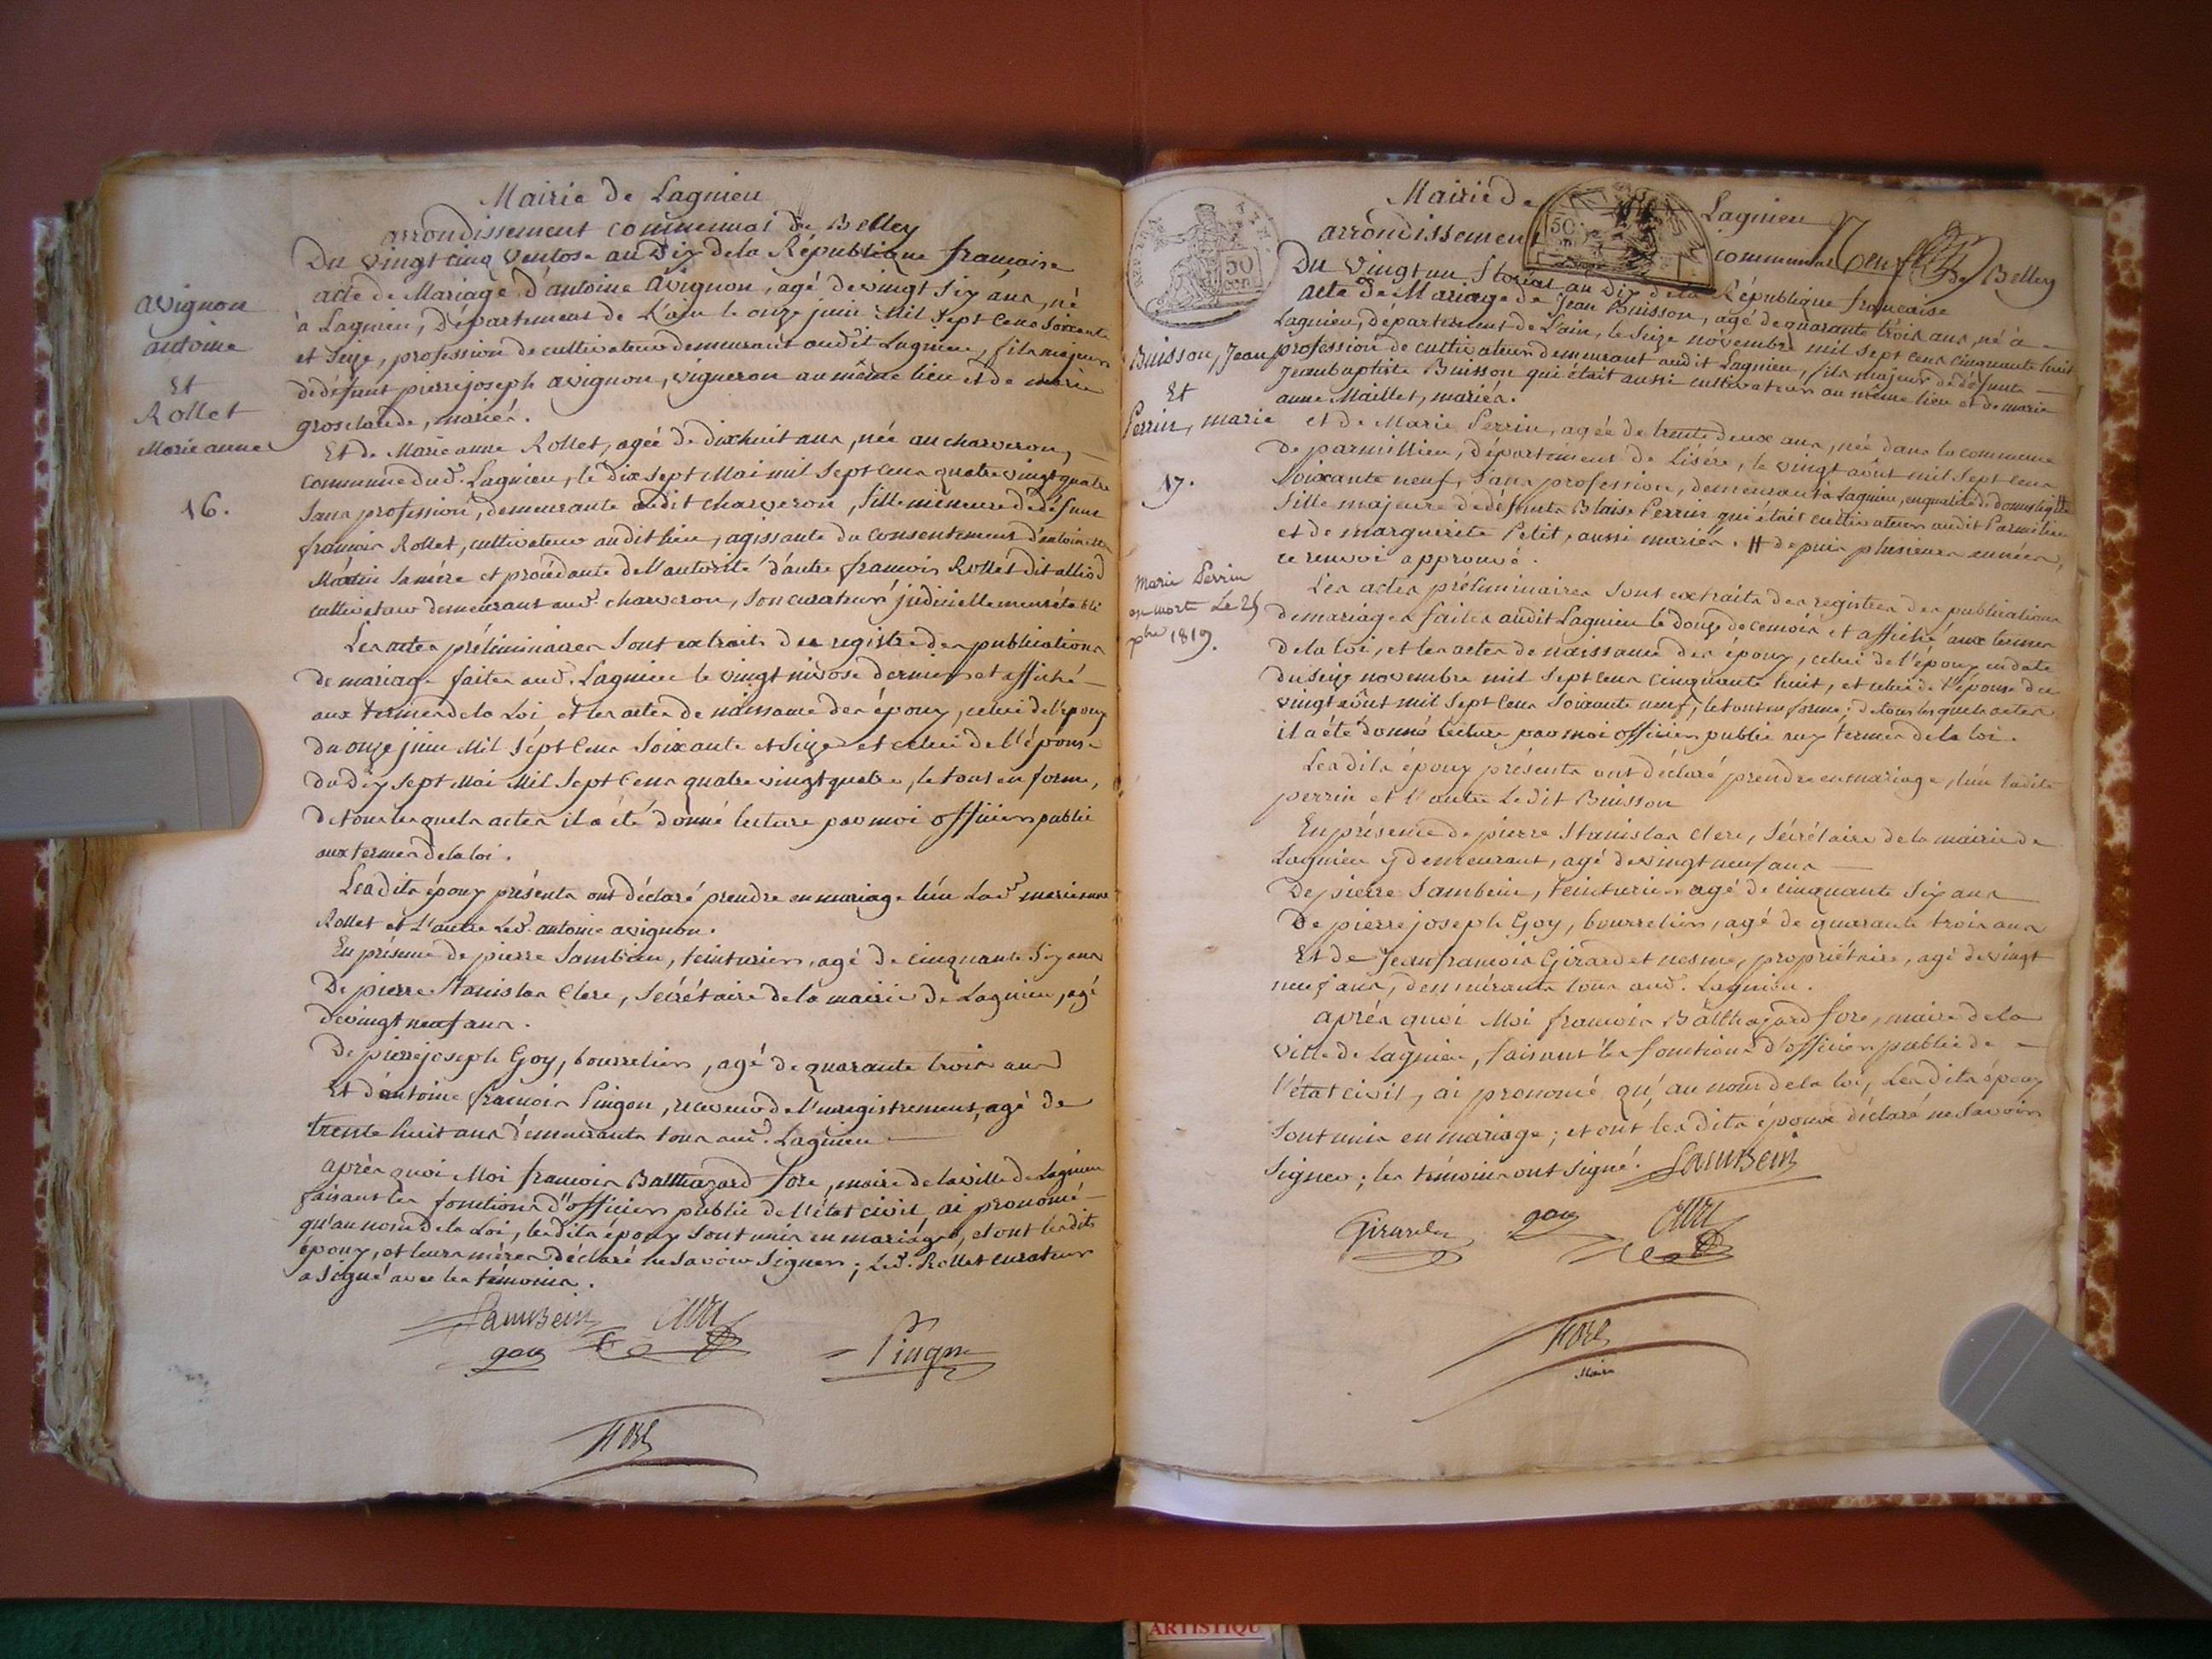 Mairie de Lagnieu
arrondissement communal de Belley
Du vingt cinq ventose an Dix de la République francaise
acte de Mariage d'antoine avignon, agé de vingt six ans, né
à Lagnieu, Département de L'ain le onze juin Mil Sept Cens Soixante
et Seize, profession de cultivateur demeurant audit Lagnieu, fils majeur
de défunt pierre joseph avignon, vigneron au même lieu et de marie
groslande, mariés.
Et de Marie anne Rollet, agée de dixhuit ans, née au charveron,
commune dud. Lagnieu, le dix Sept Mai mil Sept Cens quatre vingt quatre
Sans profession, demeurante audit charveron, fille mineure de défunt
francois Rollet, cultivateur audit lieu, agissante du consentement d'antoinette
Martin Sa mére et procédante de l'autorité d'autre francois Rollet dit alliod
cultivateur demeurant aud. charveron, Son curateur judiciellement établi
Les actes préliminaires Sont extraits du registre des publications
de mariage faites aud. Lagnieu le vingt nivose dernier et affiché
aux termes de la Loi et les actes de naissance des époux, celui de l'époux
du onze juin Mil Sept Cens Soixante et Seize et celui de l'épouse
du dix Sept Mai Mil Sept Cens quatre vingt quatre, le tout en forme,
de tous lesquels actes il a été donné lecture par moi officier public
aux termes de la loi.
Lesdits époux présents ont déclaré prendre en mariage l'un lad. marie anne
Rollet et L'autre Led. antoine avignon.
En présence de pierre Sambein, teinturier, agé de cinquante Six ans
De pierre Stanislas Clerc, Sécrétaire de la mairie de Lagnieu, agé
de vingt neuf ans.
De pierre joseph Goy, bourrelier, agé de quarante trois ans
Et d'antoine francois Pingon, receveur de l'enregistrement, agé de
trente huit ans demeurants tous aud. Lagnieu
après quoi Moi francois Balthazard fore, maire de la ville de Lagnieu
faisant les fonctions d'officier public de l'état civil, ai prononcé
qu'au nom de la Loi, lesdits époux Sont unis en mariage, et ont lesdits
époux, et leurs méres déclaré ne Savoir Signer; Led. Rollet curateur
a Signé avec les témoins.
avignon
antoine
Et
Rollet
Marie anne
16.
Sambein
goy
Pingon
fore
Mairie de Lagnieu
arrondissement communal de Belley
50
50
Du vingt un floréal an Dix de la République francaise
acte de Mariage de Jean Buisson, agé de quarante trois ans, né à
Lagnieu, département de L'ain, le Seize novembre mil Sept Cens cinquante huit
profession de cultivateur demeurant audit Lagnieu, fils majeur de défunts
Jean baptiste Buisson qui était aussi cultivateur au même lieu et de marie
anne Maillet, mariés.
et de Marie Perrin, agée de trente deux ans, née dans la commune
de parmillieu, département de Lisére, le vingt aout mil Sept Cens
Soixante neuf, Sans profession, demeurant à Lagnieu, en qualité de domestique #
fille majeure de défunts Blaise Perrin qui était cultivateur audit Parmilieu
et de marguerite Petit, aussi mariés. # depuis plusieurs années,
ce renvoi approuvé.
Les actes préliminaires Sont extraits des registres des publications
de mariages faites audit Lagnieu le douze de ce mois et affiché aux termes
de la loi, et les actes de naissance des époux, celui de l'époux en date
du Seize novembre mil Sept Cens cinquante huit, et celui de l'épouse du
vingt août mil Sept Cens Soixante neuf, le tout en forme; de tous lesquels actes
il a été donné lecture par moi officier public aux termes de la loi.
Lesdits époux présents ont déclaré prendre en mariage, l'un ladite
perrin et l'autre Ledit Buisson
En présence de pierre Stanislas Clerc, Sécrétaire de la mairie de
Lagnieu y demeurant, agé de vingt neuf ans
De pierre Sambein, teinturier agé de cinquante Six ans
De pierre joseph Goy, bourrelier, agé de quarante trois ans
Et de Jean francois Girardet nesme, propriétaire, agé de vingt
neuf ans, demeurants tous aud. Lagnieu.
après quoi Moi francois Balthazard fore, maire de la
ville de Lagnieu, faisant les fonctions d'officier public de
l'état civil, ai prononcé qu'au nom de la loi, Lesdits époux
Sont unis en mariage; et ont lesdits époux déclaré ne Savoir
Signer; les témoins ont Signé. Sambein
Girardet goy
fore
Maire
Buisson, Jean
Et
Perrin, marie
17.
Marie Perrin
est morte Le 25
1819.
ARTISTIQU